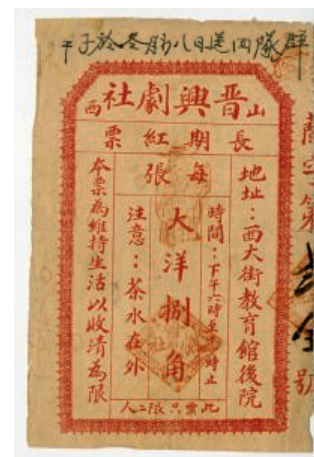 於冬月初八日送四隊
山西晋興劇社
長期紅票
地址：西大街教育館後院
每張
時間：下午六時至時止
大洋捌角
注意：茶水在外
本票為維持生活以收清為限
此票只限二人
字第
號